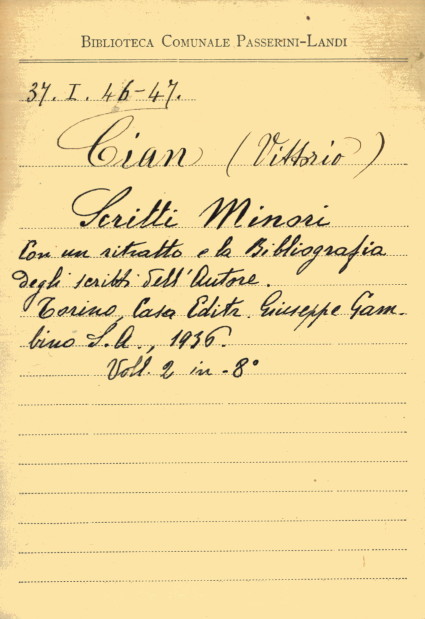 BIBLIOTECA COMUNALE PASSERINI-LANDI
37. I. 46-47.
Cian (Vittorio)
Scritti Minori
Con un ritratto e la Bibliografia
degli scritti dell'Autore.
Torino, Casa Editr. Giuseppe Gam-
bino S.A., 1936.
Voll. 2 in-8°